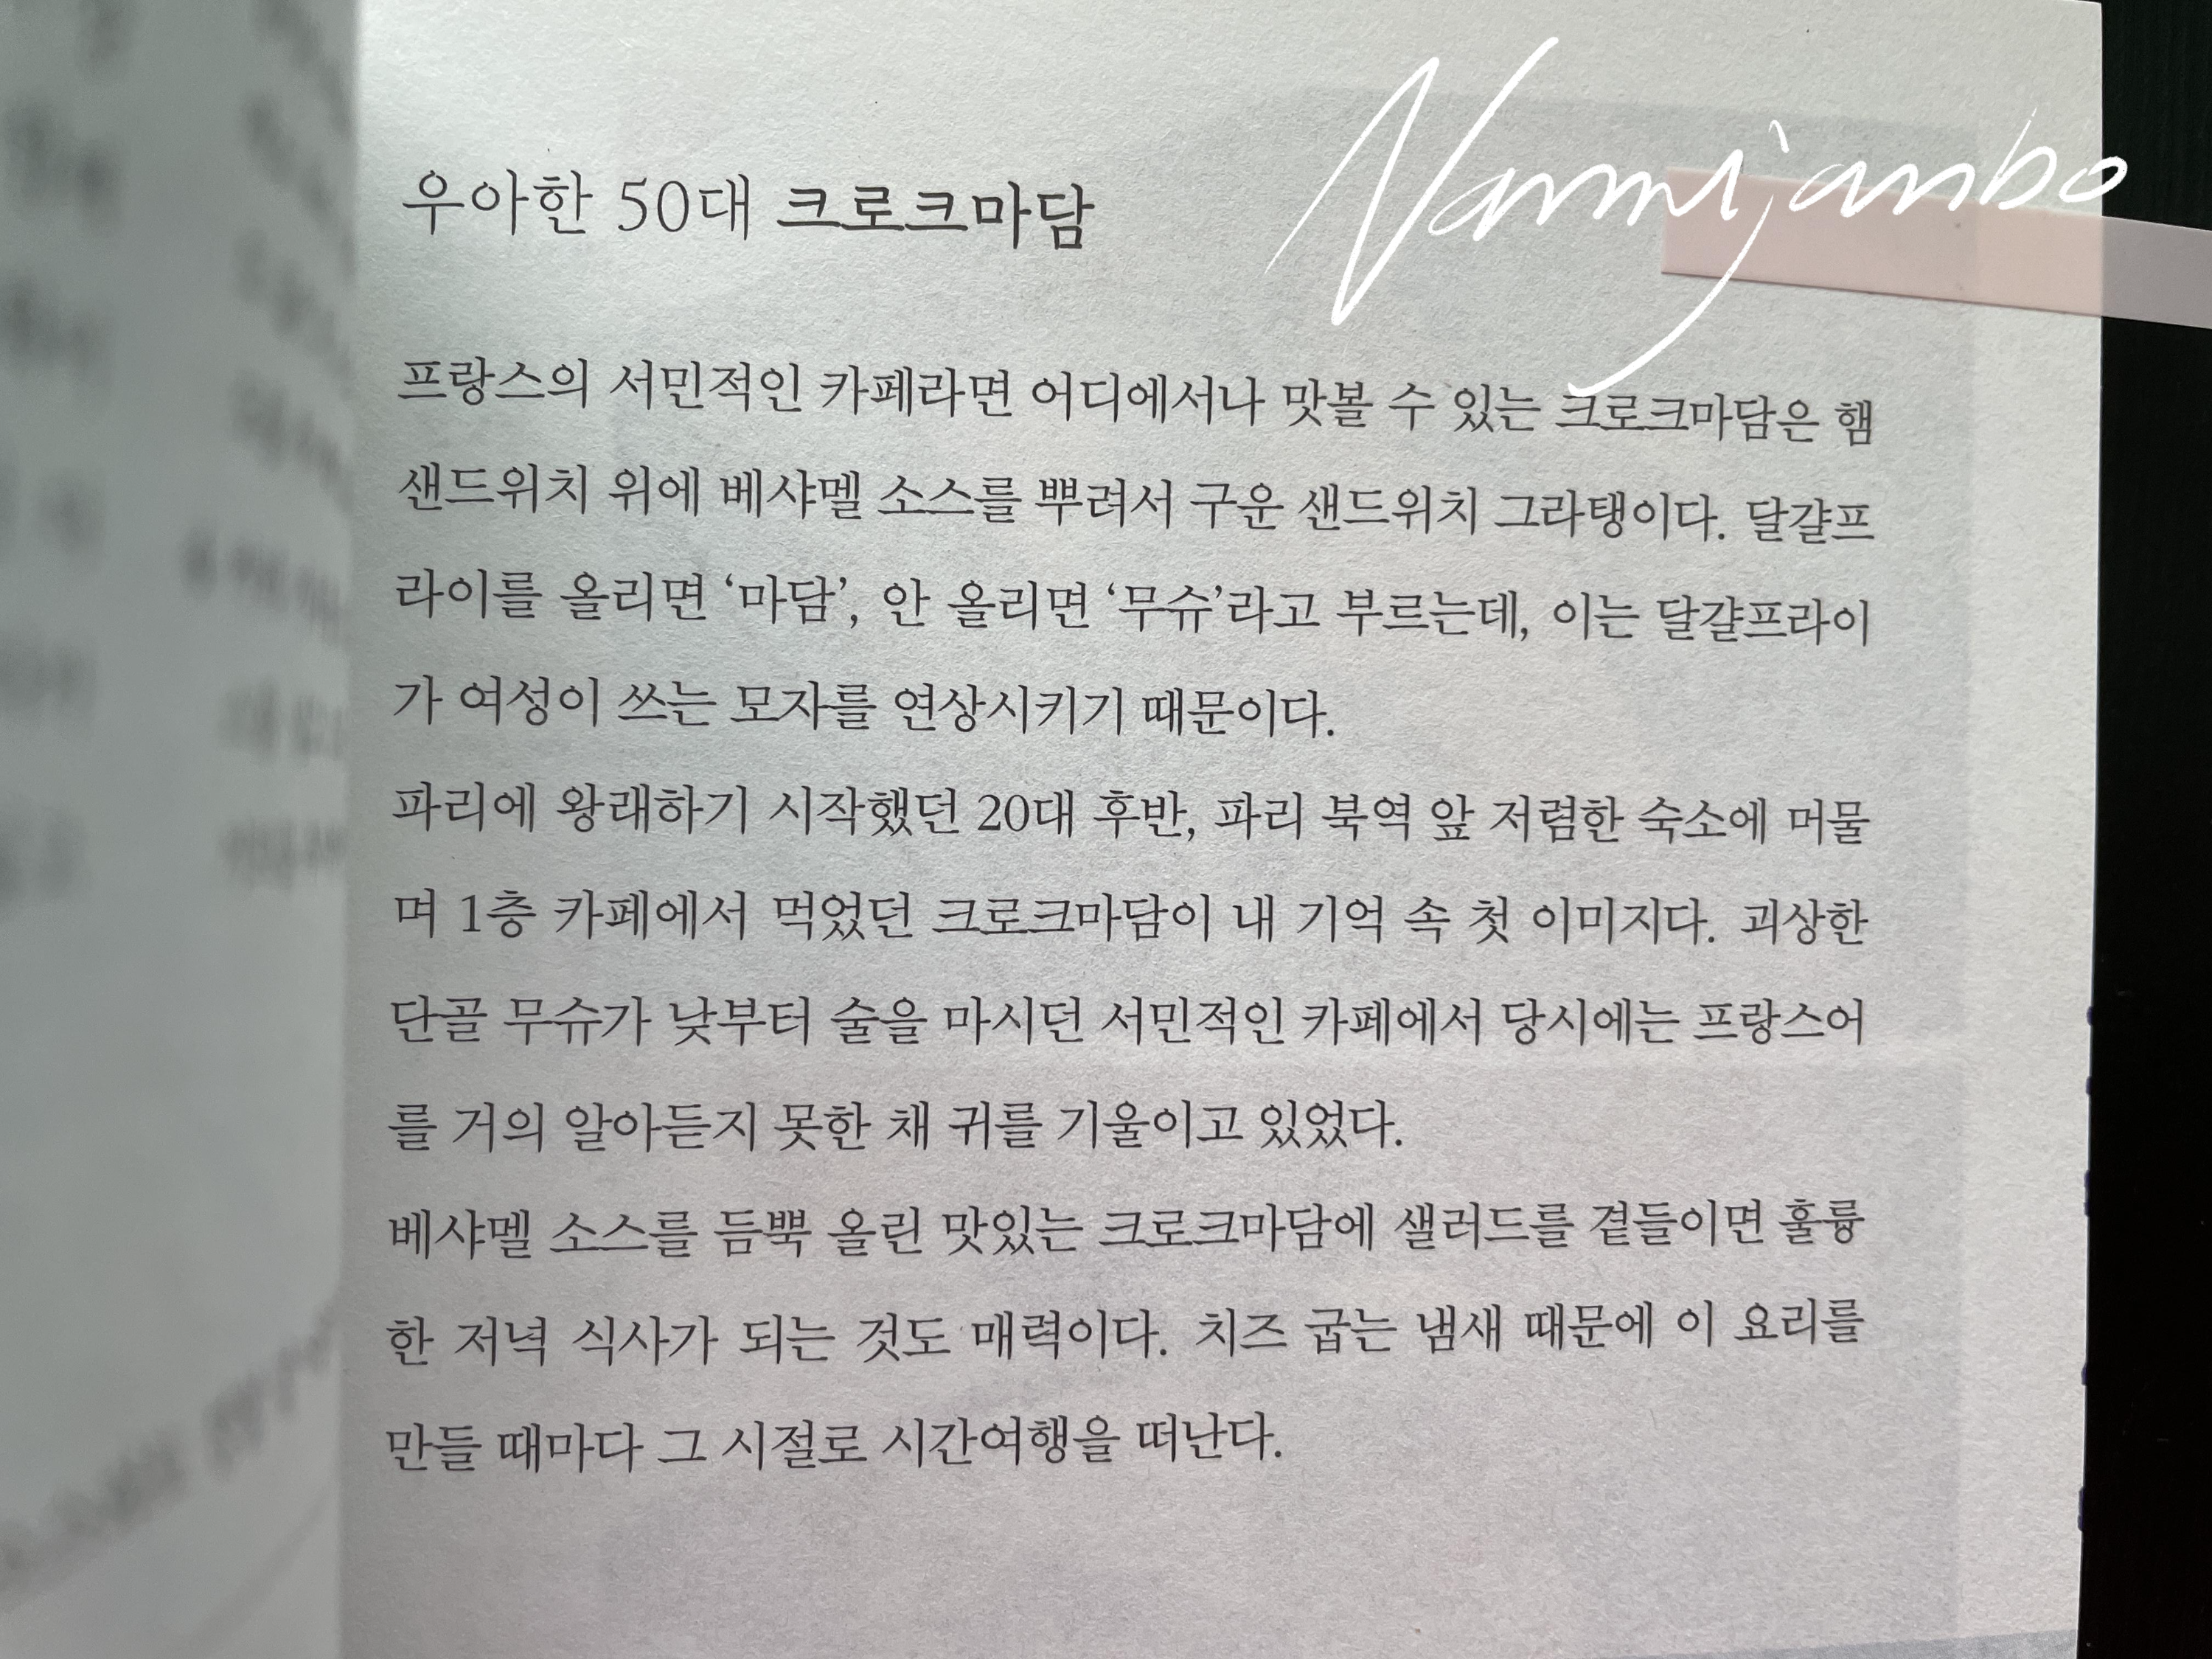 Nammijanbo
우아한 50대 크로크마담
프랑스의 서민적인 카페라면 어디에서나 맛볼 수 있는 크로크마담은 햄
샌드위치 위에 베샤멜 소스를 뿌려서 구운 샌드위치 그라탱이다. 달걀프
라이를 올리면 ‘마담’, 안 올리면 ‘무슈’라고 부르는데, 이는 달걀프라이
가 여성이 쓰는 모자를 연상시키기 때문이다.
파리에 왕래하기 시작했던 20대 후반, 파리 북역 앞 저렴한 숙소에 머물
며 1층 카페에서 먹었던 크로크마담이 내 기억 속 첫 이미지다. 괴상한
단골 무슈가 낮부터 술을 마시던 서민적인 카페에서 당시에는 프랑스어
를 거의 알아듣지 못한 채 귀를 기울이고 있었다.
베샤멜 소스를 듬뿍 올린 맛있는 크로크마담에 샐러드를 곁들이면 훌륭
한 저녁 식사가 되는 것도 매력이다. 치즈 굽는 냄새 때문에 이 요리를
만들 때마다 그 시절로 시간여행을 떠난다.